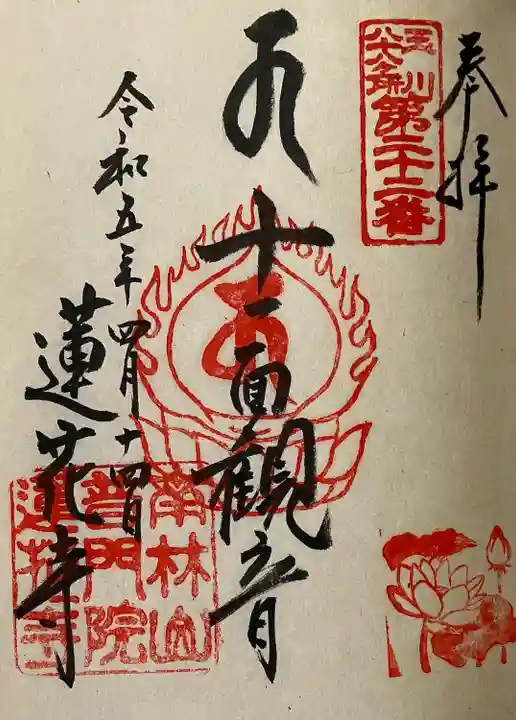 奉拝
玉川
八十八ヶ所
第二十二番
十一面観音
令和五年四月十四日
蓮花寺
南林山
普門院